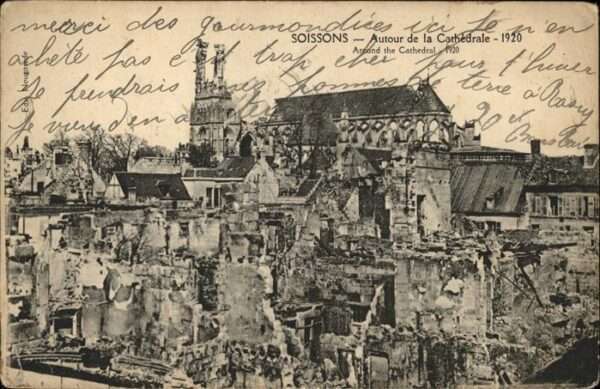 SOISSONS — Autour de la Cathédrale - 1920
Around the Cathedral - 1920
merci des gourmandises ici l'on en
achète pas c'est trop cher pour l'hiver
je prendrais des pommes de terre à
je viendrai
et
Edit. Nougarède